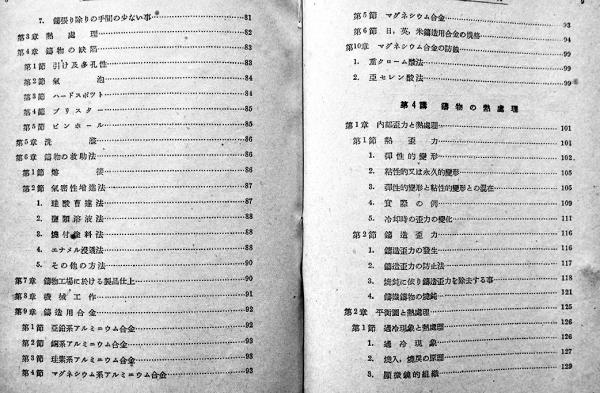 7. 鑄張り除りの手間の少ない事 81
第3章 熱處理 82
第4章 鑄物の缺陷 83
第1節 引け及多孔性 83
第2節 氣泡 84
第3節 ハードスポツト 84
第4節 ブリスター 85
第5節 ピンホール 85
第5章 洗滌 86
第6章 鑄物の救助法 86
第1節 熔接 86
第2節 氣密性增進法 87
1. 硅酸曹達法 87
2. 鹽類溶液法 88
3. 燒付塗料法 88
4. エナメル浸漬法 88
5. その他の方法 90
第7章 鑄物工場に於ける製品仕上 90
第8章 機械工作 91
第9章 鑄造用合金 92
第1節 亞鉛系アルミニウム合金 92
第2節 銅系アルミニウム合金 92
第3節 珪素系アルミニウム合金 93
第4節 マグネシウム系アルミニウム合金 93
第5節 マグネシウム合金 93
第6節 日，英，米鑄造用合金の規格 94
第10章 マグネシウム合金の防蝕 99
1. 重クローム酸法 99
2. 亞セレン酸法 99
第4講 鑄物の熱處理
第1章 內部歪力と熱處理 101
第1節 熱歪力 101
1. 彈性的變形 102
2. 粘性的又は永久的變形 105
3. 彈性的變形と粘性的變形との混在 105
4. 實際の例 109
5. 冷却時の歪力の變化 111
第2節 鑄造歪力 116
1. 鑄造歪力の發生 116
2. 鑄造歪力の防止法 117
3. 燒鈍に依り鑄造歪力を除去する事 118
4. 鑄鐵鑄物の燒鈍 121
第2章 平衡圖と熱處理 125
第1節 過冷現象と熱處理 126
1. 過冷現象 126
2. 燒入，燒戾の原理 127
3. 顯微鏡的組織 129